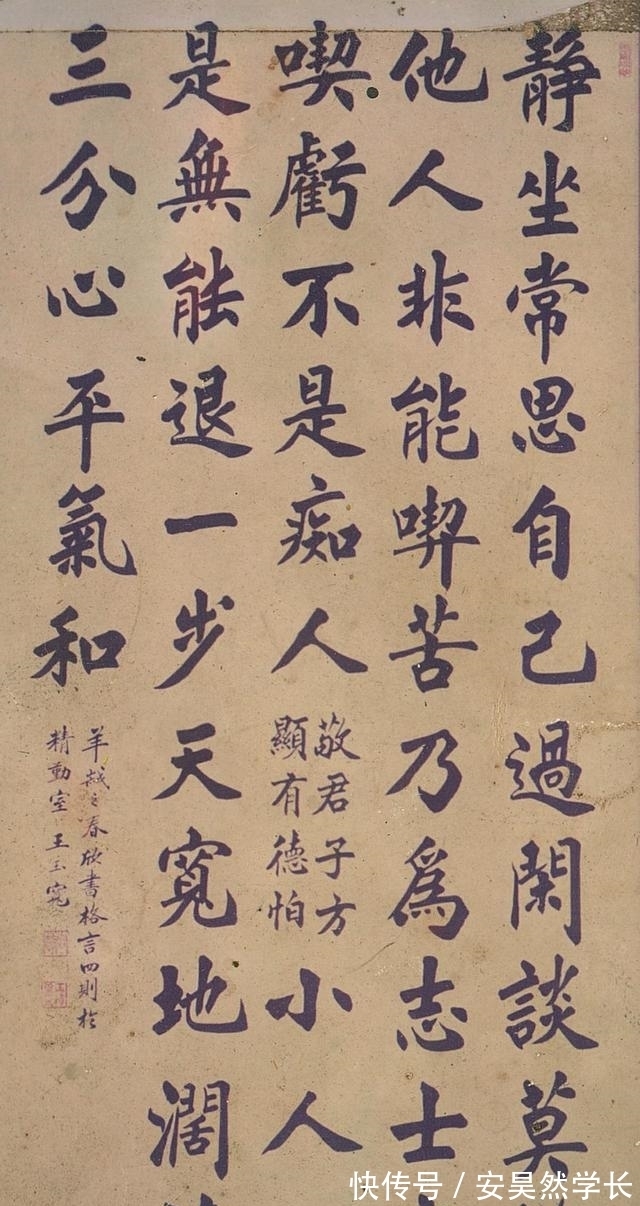 静坐常思自己過閑談莫
他人非能喫苦乃爲志士
喫虧不是痴人敬君子方
顯有德怕小人
是無能退一步天寬地濶
三分心平氣和
春欣書格言四則於
精勤室王玉寬
快传号/安昊然学长